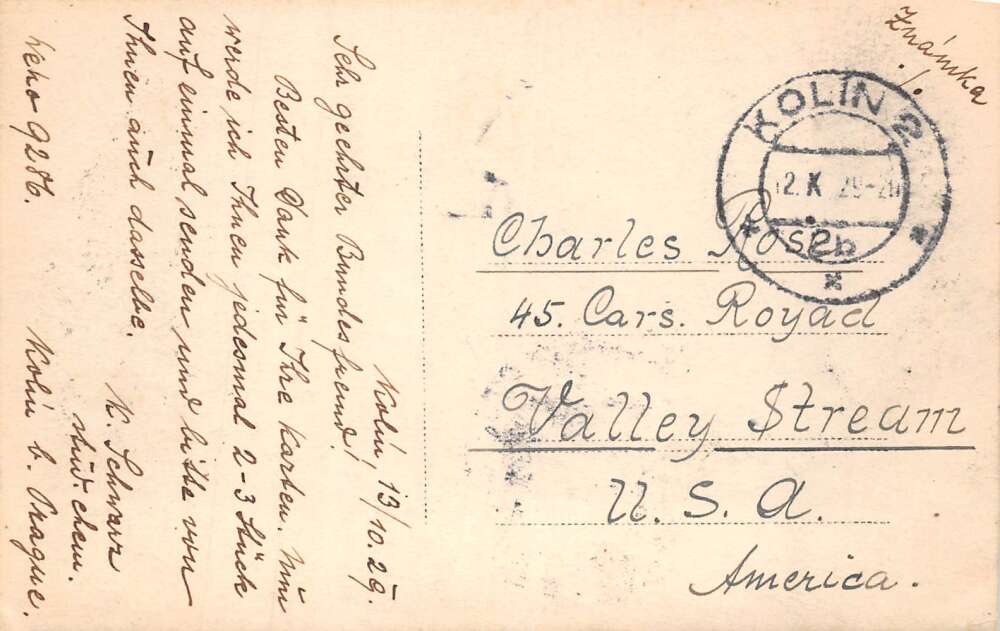 Kolín 13/10.29.
Sehr geehrter Bundesfreund!
Besten Dank für Ihre Karten. Nun
werde ich Ihnen jedesmal 2-3 Stück
auf einmal senden und bitte von
Ihnen auch dasselbe.
K. Schwarz
stud. chem.
Kolín b. Prague.
Weho 9286.
Známka
!
KOLÍN 2
12. X 29-20
Charles
45. Cars. Royad
Valley Stream
U. S. A.
America.